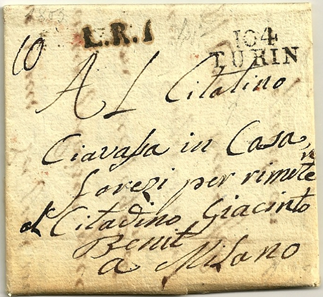 10 L.R.1 104
TURIN
Al Citatino
Ciavassa in Casa
Lorezi per rimete
al Citadino Giacinto
Benit
a Milano